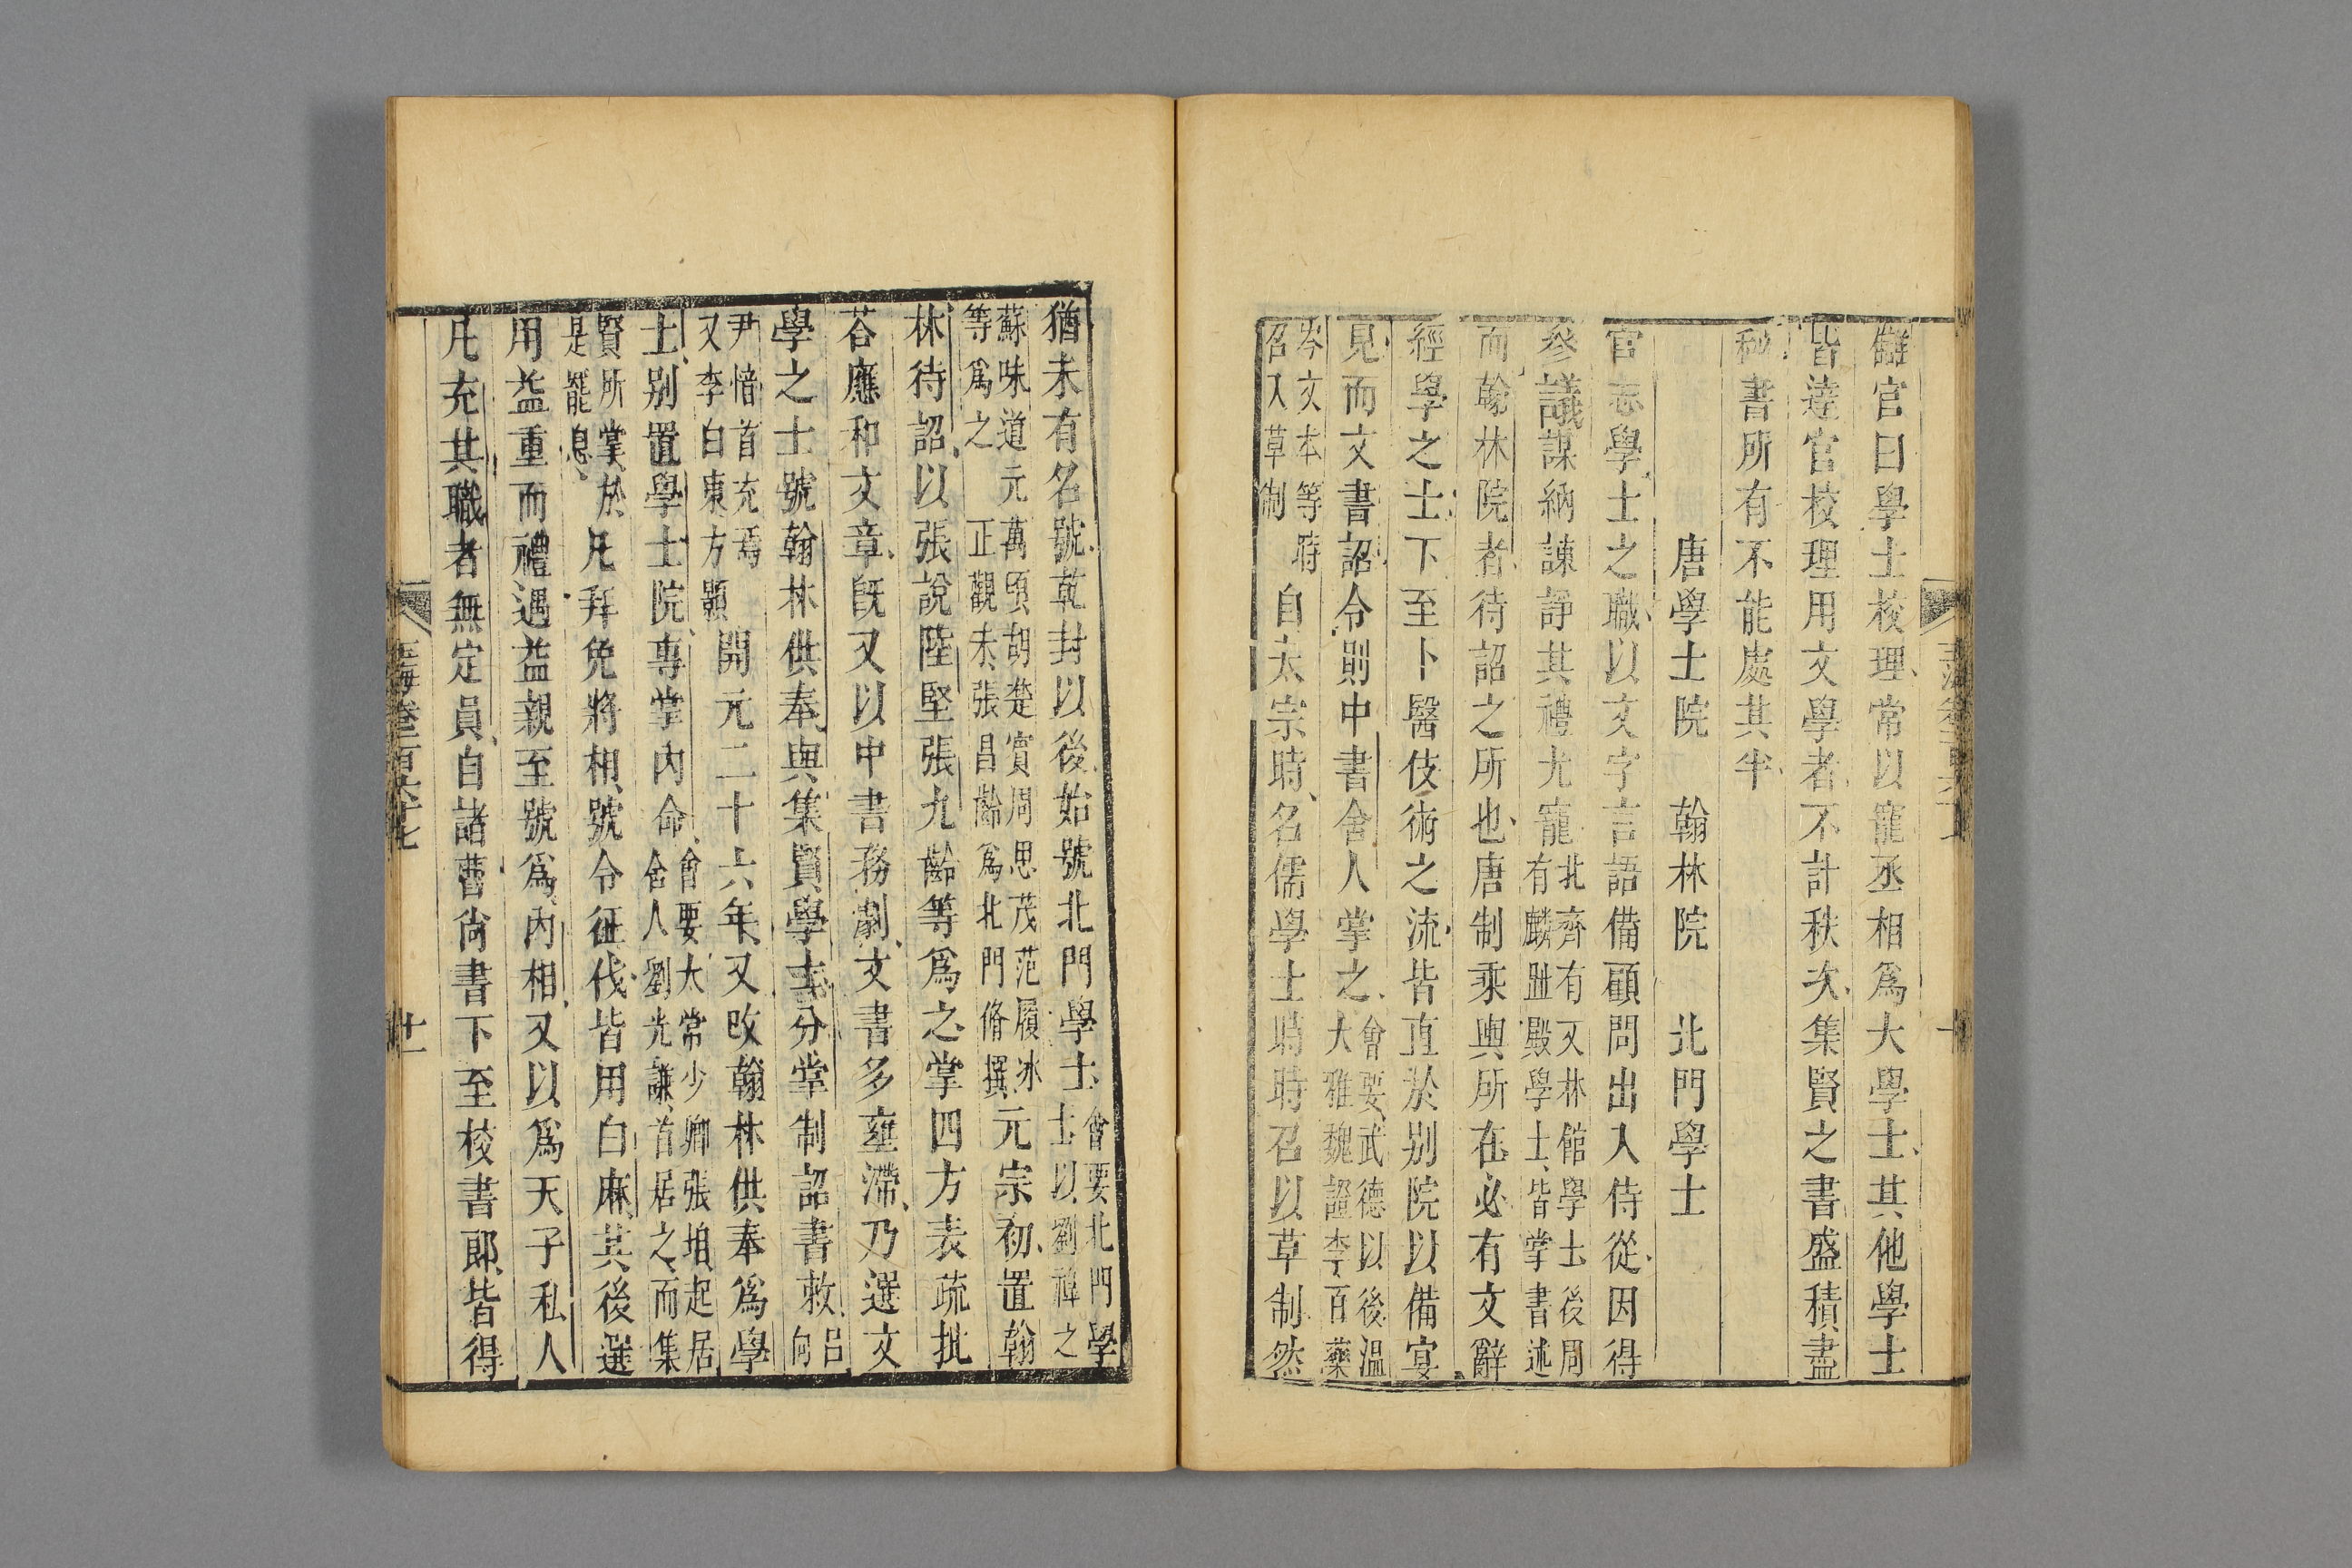 讎官曰學士校理常以寵丞相爲大學士其他學士
皆達官校理用文學者不計秩次集賢之書盛積盡
秘書所有不能處其半
唐學士院 翰林院 北門學士
官志學士之職以文字言語備顧問出入侍從因得
參議謀納諫諍其禮尤寵
北齊有文林館學士後周
有麟趾殿學士皆掌書述
而翰林院者待詔之所也唐制乘輿所在必有文辭
經學之士下至卜醫伎術之流皆直於别院以備宴
見而文書詔令則中書舍人掌之
會要武德以後温
大雅魏證李百藥
岑文本等時
召入草制
自太宗時名儒學士時時召以草制然
猶未有名號乾封以後始號北門學士
會要北門學
士以劉禕之
蘇味道元萬頃胡楚賓周思茂范履冰
等爲之 正觀未張昌齡爲北門脩撰
元宗初置翰
林待詔以張說陸堅張九齡等爲之掌四方表疏批
荅應和文章旣又以中書務劇文書多壅滯乃選文
學之士號翰林供奉與集賢學士分掌制詔書敕
吕
向
尹愔首充焉
又李白東方顥
開元二十六年又改翰林供奉爲學
士别置學士院專掌内命
會要太常少卿張垍起居
舍人劉光謙首居之而集
賢所掌於
是罷息
凡拜免將相號令征伐皆用白麻其後選
用益重而禮遇益親至號爲内相又以爲天子私人
凡充其職者無定員自諸曹尚書下至校書郎皆得
玉海卷一百六十七
十一